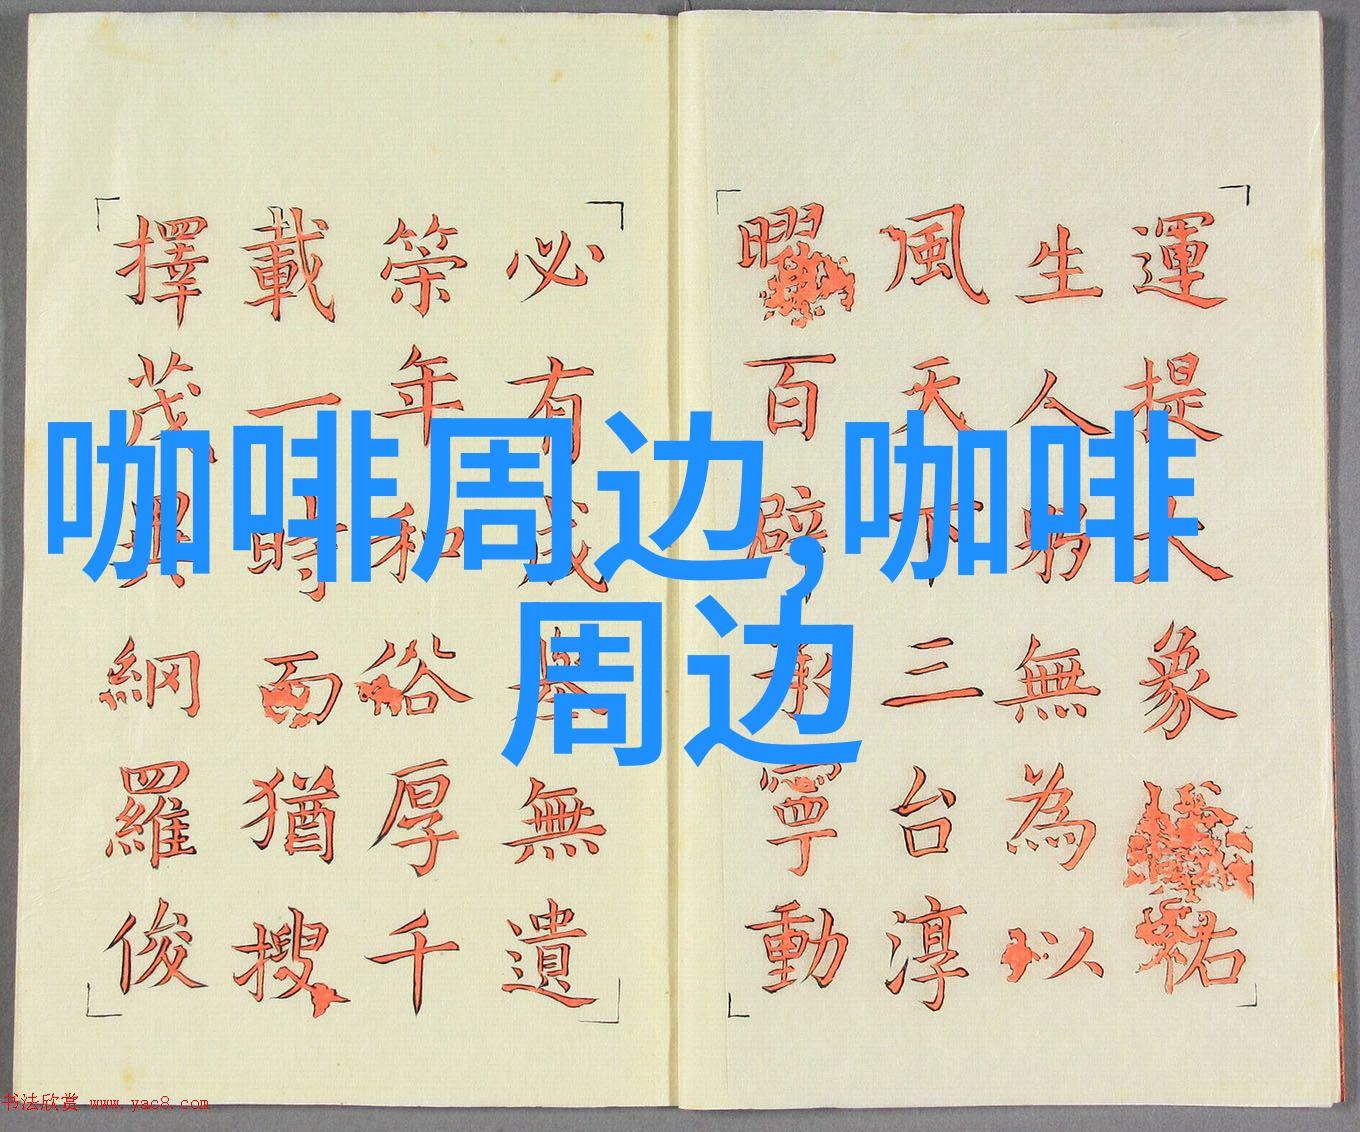 運提大象祐
生人無為以
風天下三台淳
曜百辟承寧動
必有成無遺
策年和俗厚千
載一時而猶搜
擇茂異網羅俊
咖啡周边,咖啡
周边
书法欣赏 www.yac8.com